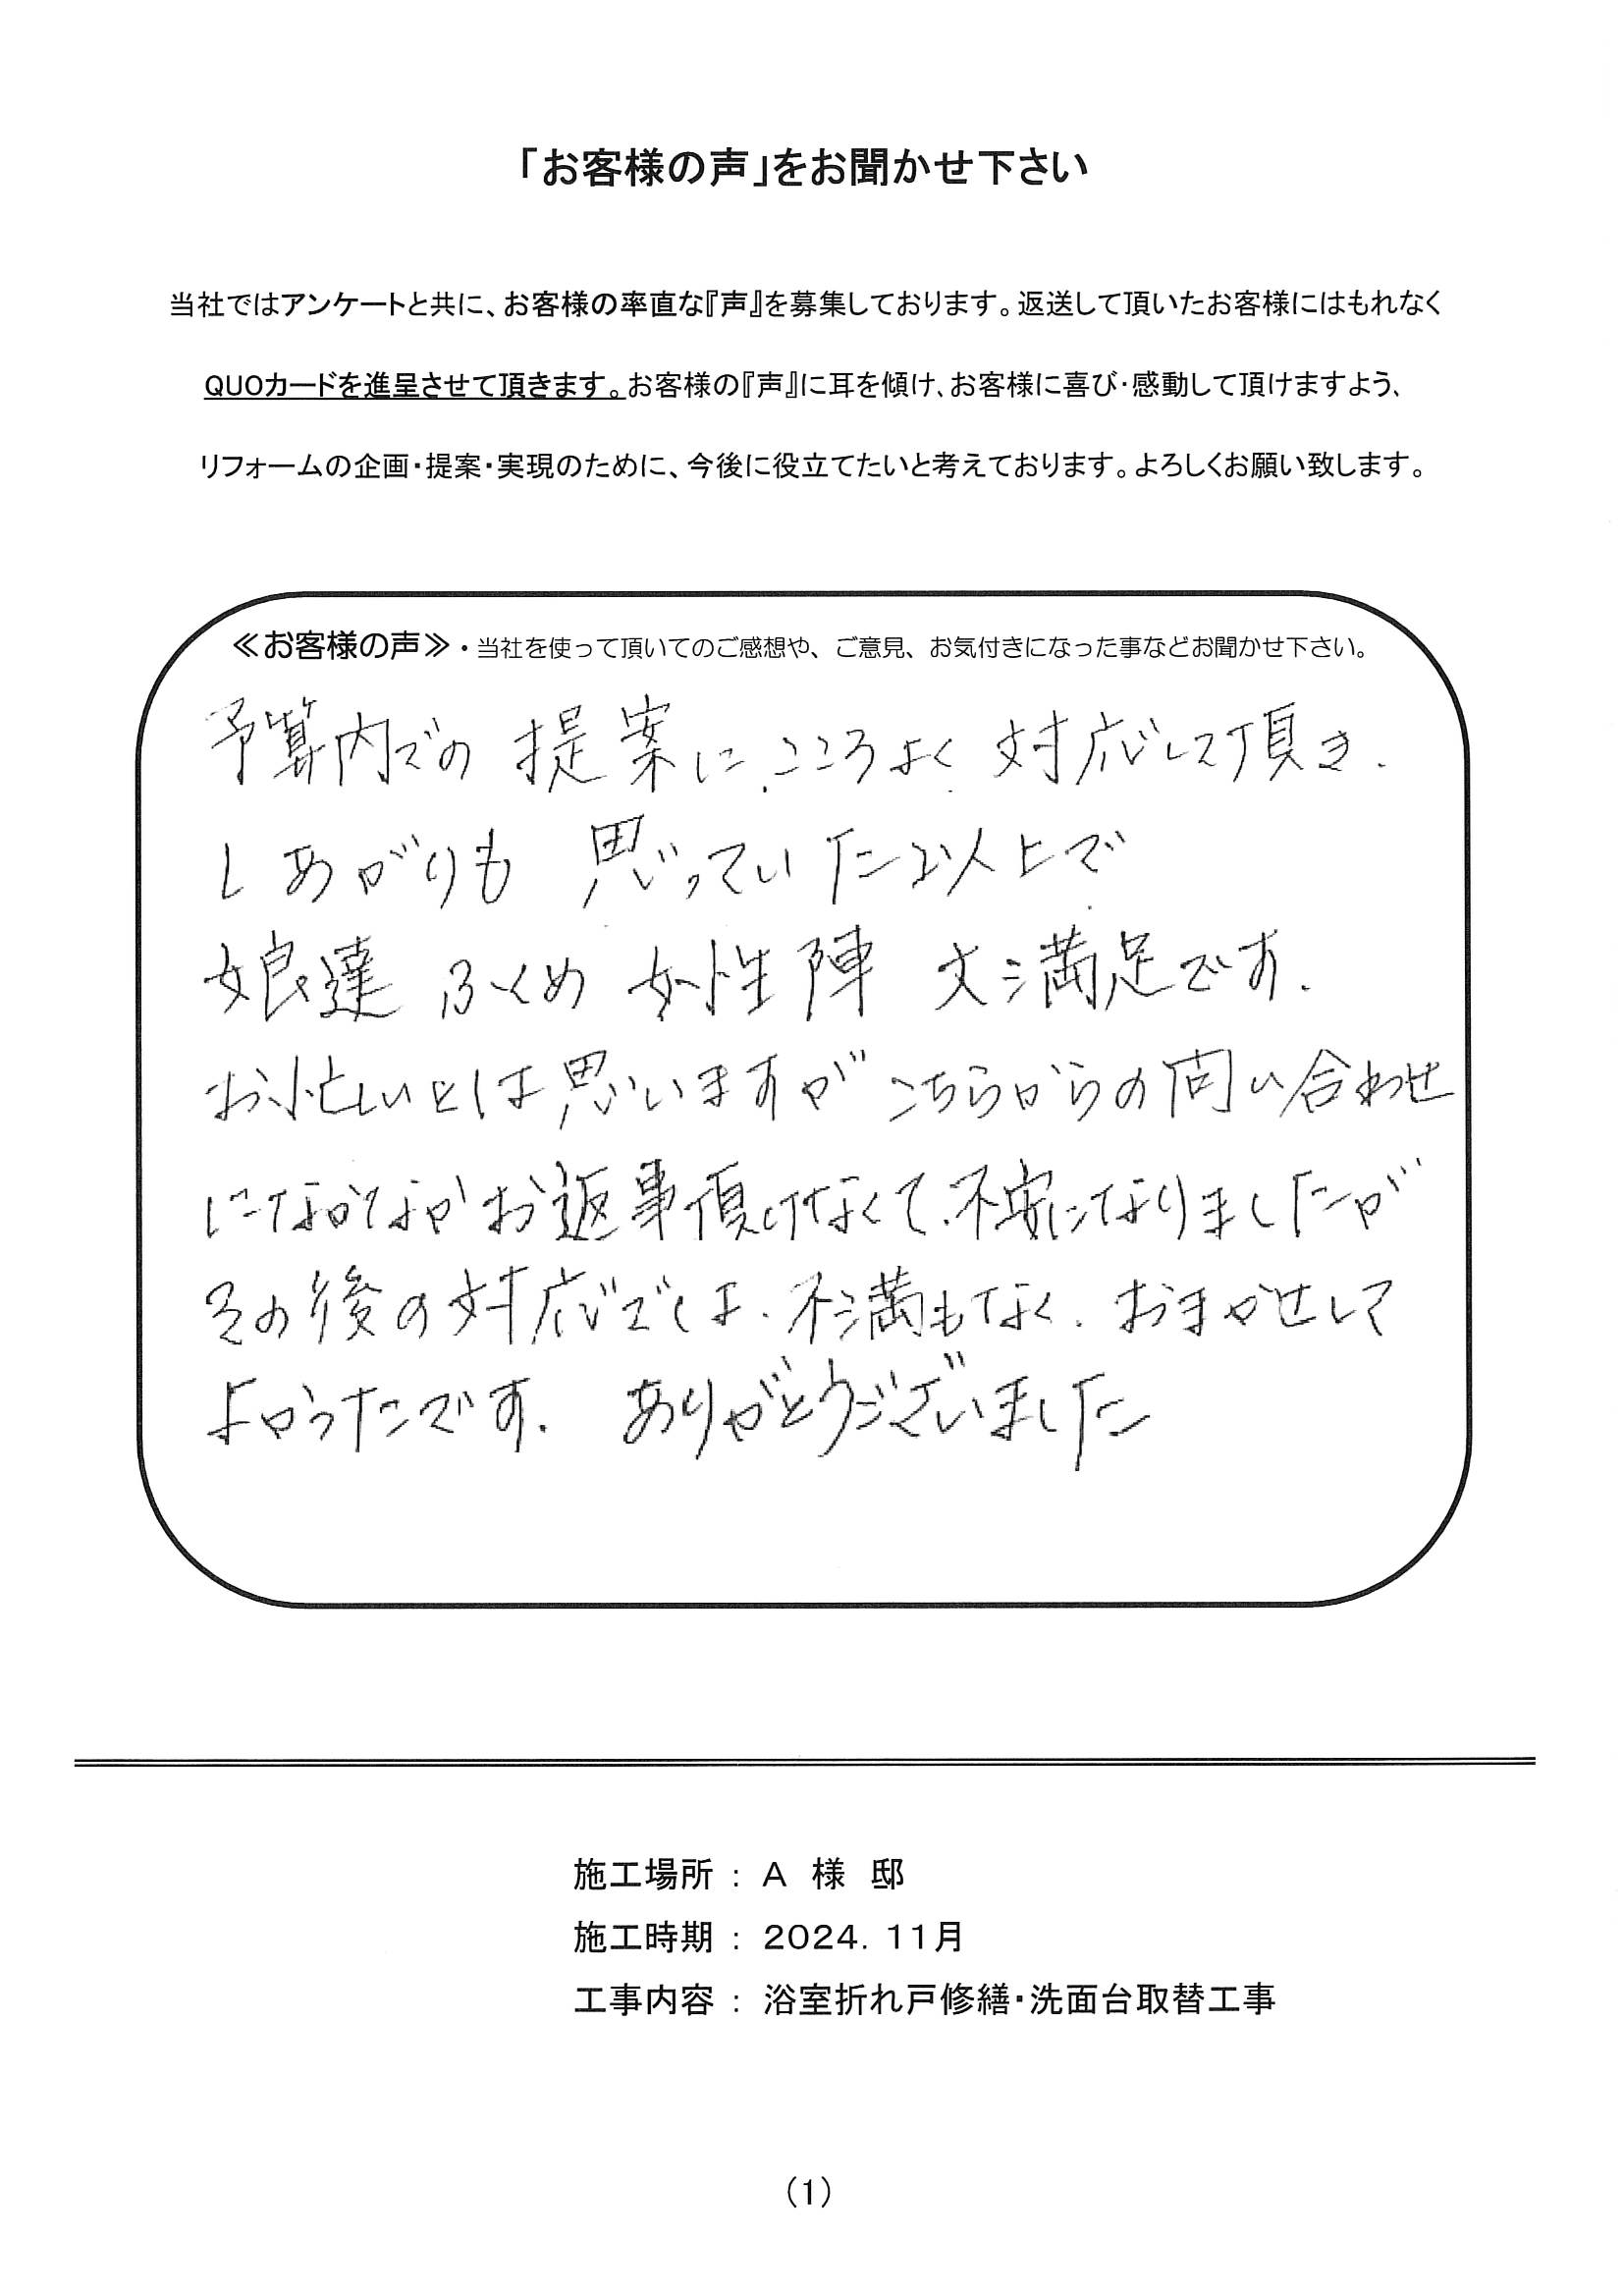 「お客様の声」をお聞かせ下さい
当社ではアンケートと共に、お客様の率直な『声』を募集しております。返送して頂いたお客様にはもれなく
QUOカードを進呈させて頂きます。お客様の『声』に耳を傾け、お客様に喜び・感動して頂けますよう、
リフォームの企画・提案・実現のために、今後に役立てたいと考えております。よろしくお願い致します。
≪お客様の声≫・当社を使って頂いてのご感想や、ご意見、お気付きになった事などお聞かせ下さい。
予算内での 提案に、こころよく 対応して頂き、
しあがりも 思っていた以上で
娘達 ふくめ 女性陣 大満足です。
お忙しいとは思いますが こちらからの問い合わせ
になかなかお返事頂けなくて、不安になりましたが
その後の対応では、不満もなく、おまかせして
よかったです。 ありがとうございました
施工場所 : A 様 邸
施工時期 : 2024. 11月
工事内容 : 浴室折れ戸修繕・洗面台取替工事
(1)